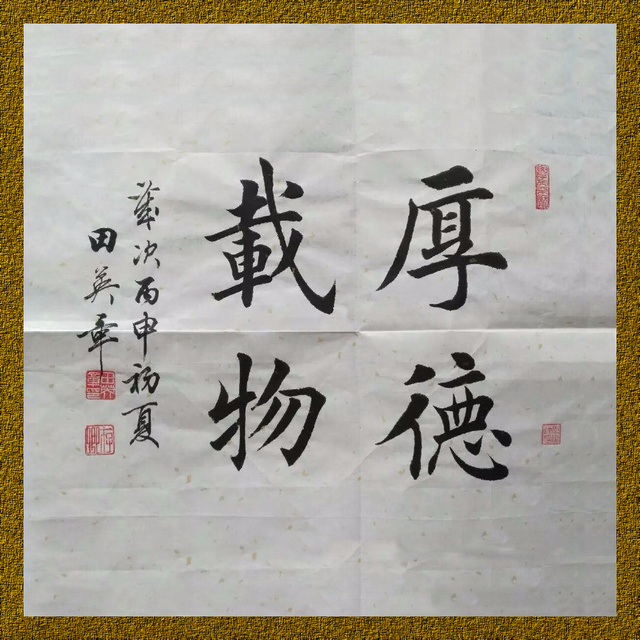 厚德
載物
歲次丙申初夏
田英章